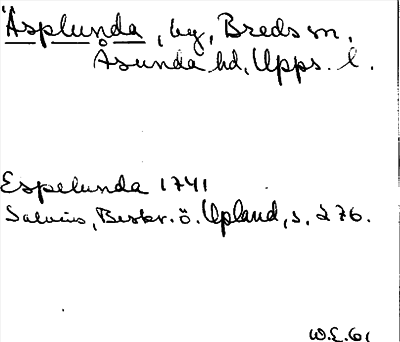 Äsplunda, by, Breds sn,
Åsunda hd, Upps. l.
Espelunda 1741
Salvius, Beskr. ö. Upland, s. 276.
W.E. 61